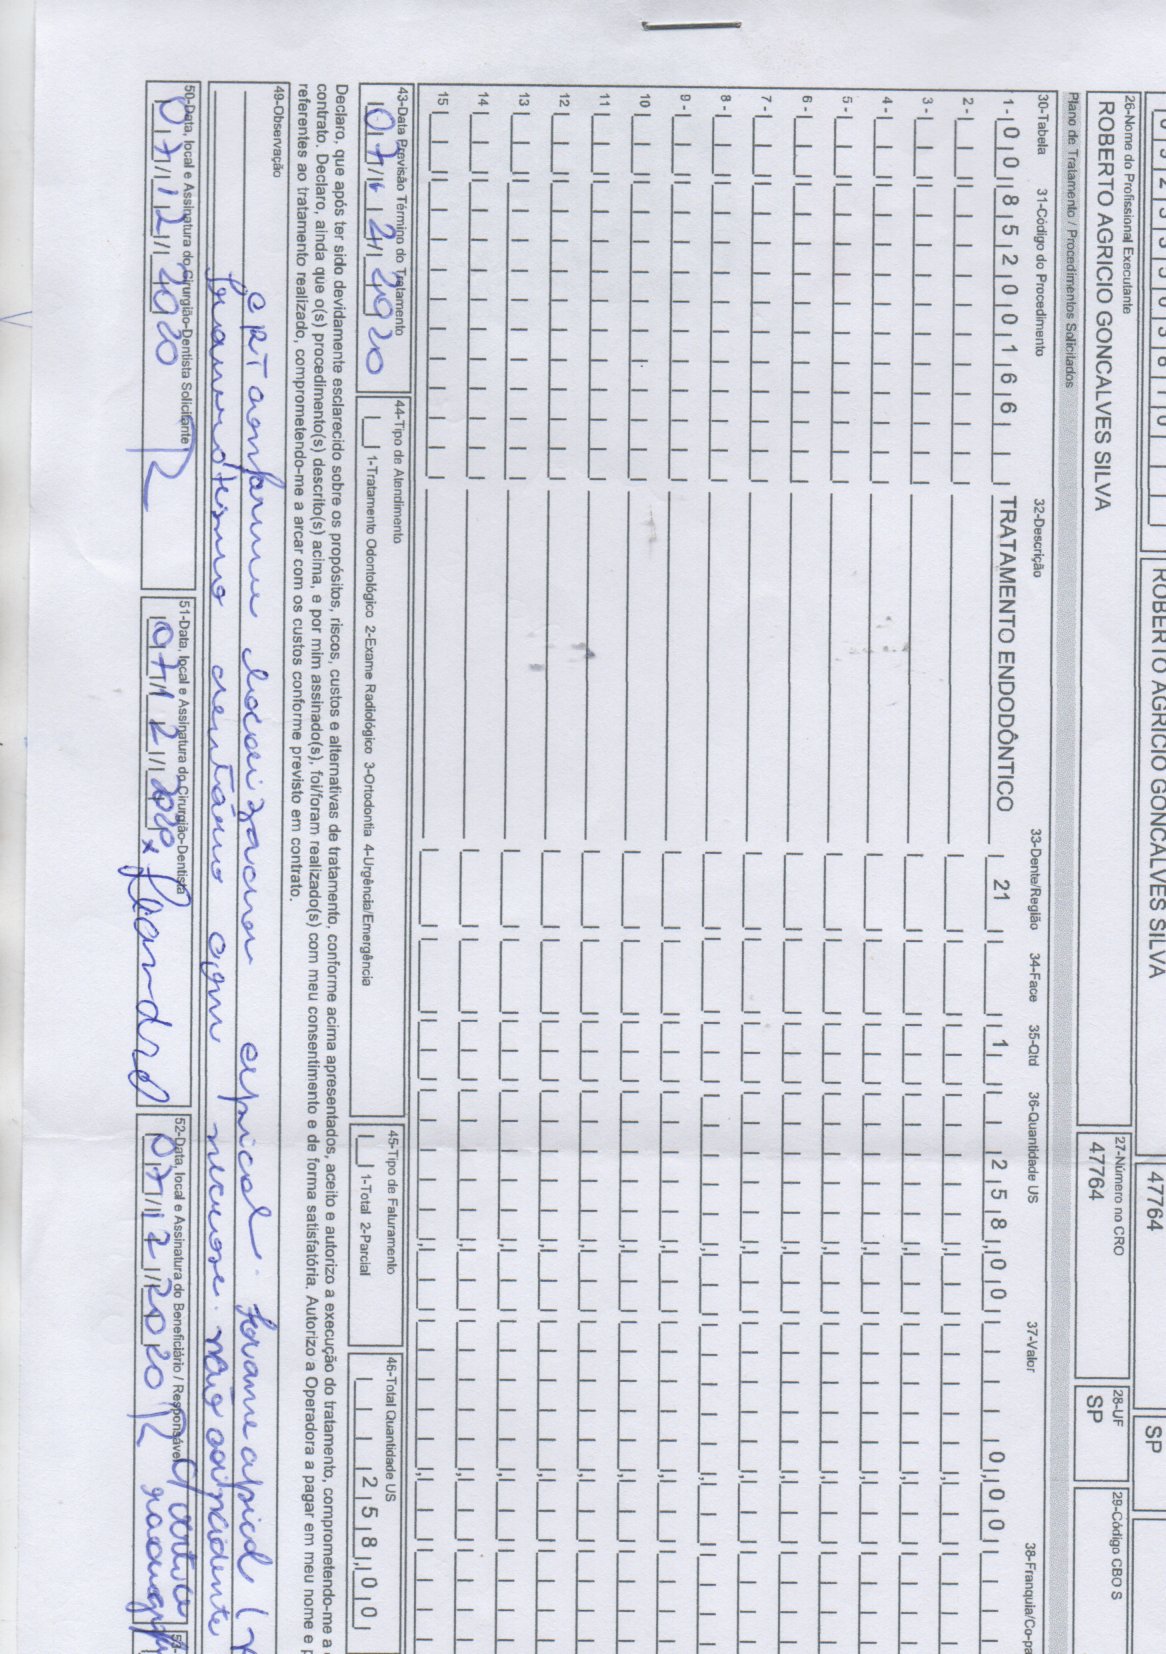 ROBERTO AGRICIO GONCALVES SILVA
47764
SP
26-Nome do Profissional Executante
ROBERTO AGRICIO GONCALVES SILVA
27-Número no CRO
47764
28-UF
SP
29-Código CBO S
Plano de Tratamento / Procedimentos Solicitados
30-Tabela 31-Código do Procedimento 32-Descrição 33-Dente/Região 34-Face 35-Qtd 36-Quantidade US 37-Valor 38-Franquia/Co-pa
1- 00 85200166 TRATAMENTO ENDODÔNTICO 21 1 258,00 0,00
2-
3-
4-
5-
6-
7-
8-
9-
10
11
12
13
14
15
43-Data Previsão Término do Tratamento
07/12/2020
44-Tipo de Atendimento
1-Tratamento Odontológico 2-Exame Radiológico 3-Ortodontia 4-Urgência/Emergência
45-Tipo de Faturamento
1-Total 2-Parcial
46-Total Quantidade US
258,00
Declaro, que após ter sido devidamente esclarecido sobre os propósitos, riscos, custos e alternativas de tratamento, conforme acima apresentados, aceito e autorizo a execução do tratamento, comprometendo-me a
contrato. Declaro, ainda que o(s) procedimento(s) descrito(s) acima, e por mim assinado(s), foi/foram realizado(s) com meu consentimento e de forma satisfatória. Autorizo a Operadora a pagar em meu nome e
referentes ao tratamento realizado, comprometendo-me a arcar com os custos conforme previsto em contrato.
49-Observação
CRT conforme localizador apical. forame apical
dentário com necrose. não coincidente
50-Data, local e Assinatura do Cirurgião-Dentista Solicitante
07/12/2020
51-Data, local e Assinatura do Cirurgião-Dentista
07/12/2020
52-Data, local e Assinatura do Beneficiário / Responsável
07/12/2020
53-